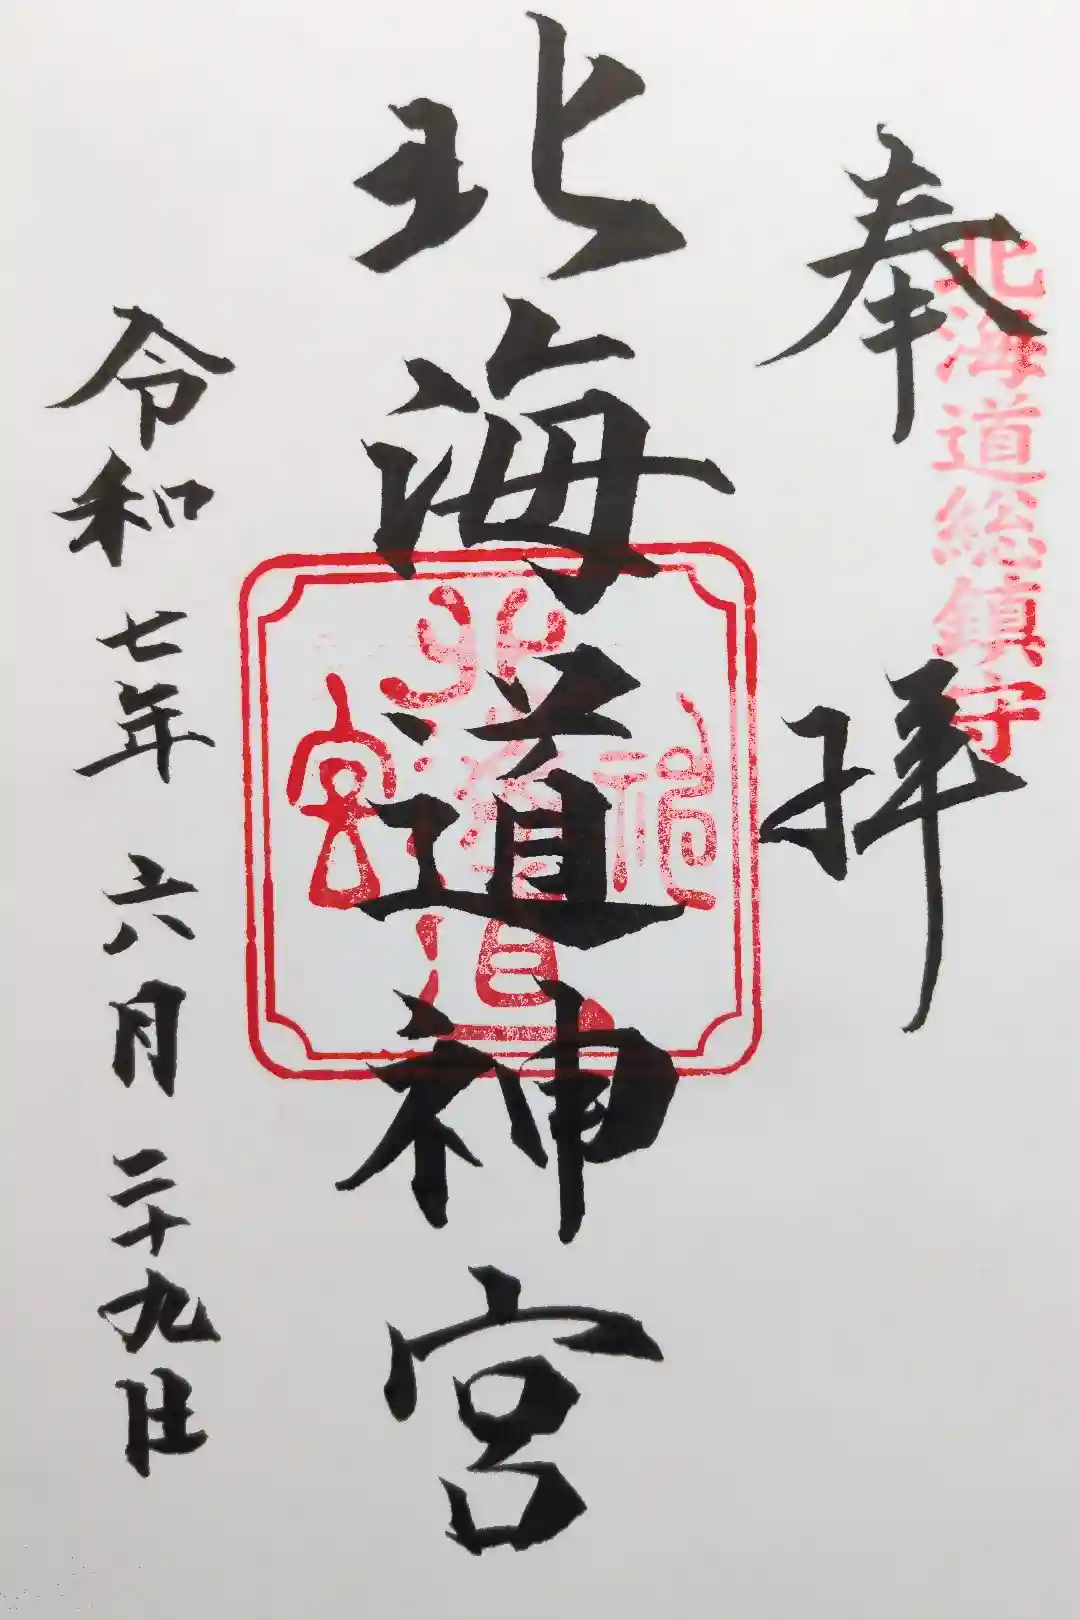 北海道総鎮守
奉拝
北海道神宮
北海道神宮
令和七年六月二十九日